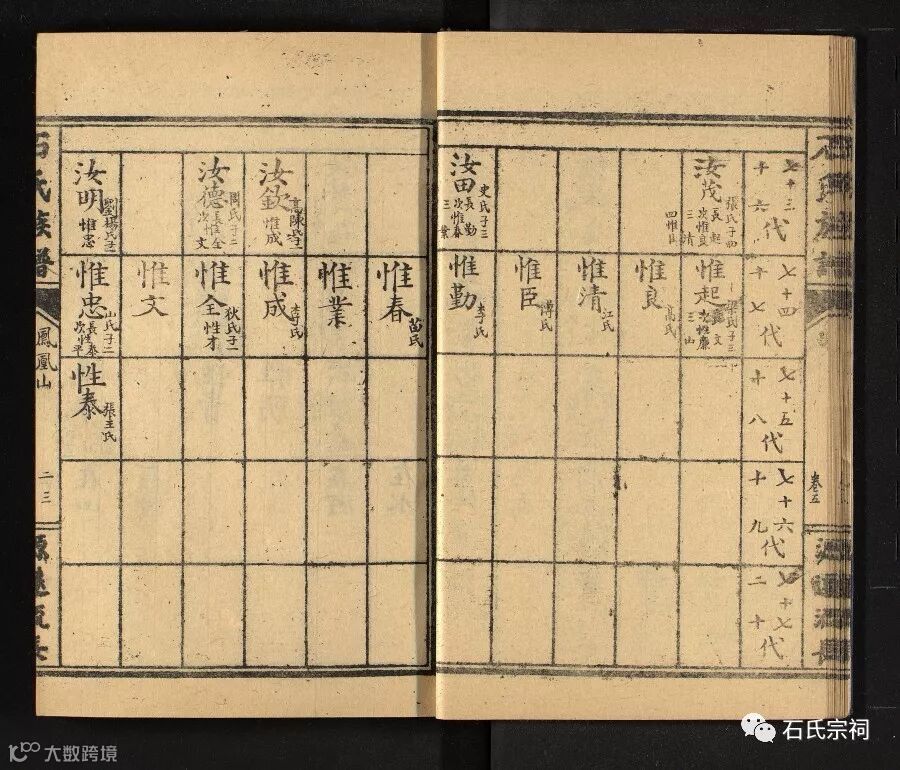 石氏族譜
卷五
源遠流長
七十三代
十六
七十四代
十七
七十五代
十八
七十六代
十九
七十七代
二十
汝茂
張氏子四
長 起
次惟良
三 清
四惟臣
惟起
梁氏子三
次性廉
三 山
惟良
高氏
惟清
江氏
惟臣
傅氏
汝田
史氏子三
長 勤
次惟春
三 業
惟勤
李氏
惟春
苗氏
惟業
汝欽
惟成
惟成
李氏
汝德
周氏子二
長惟全
次 文
惟全
狄氏子一
性才
惟文
汝明
劉楊氏子一
惟忠
惟忠
山氏子二
長性泰
次 平
性泰
張王氏
石氏族譜
鳳凰山
二三
源遠流長
石氏宗祠
大数跨境